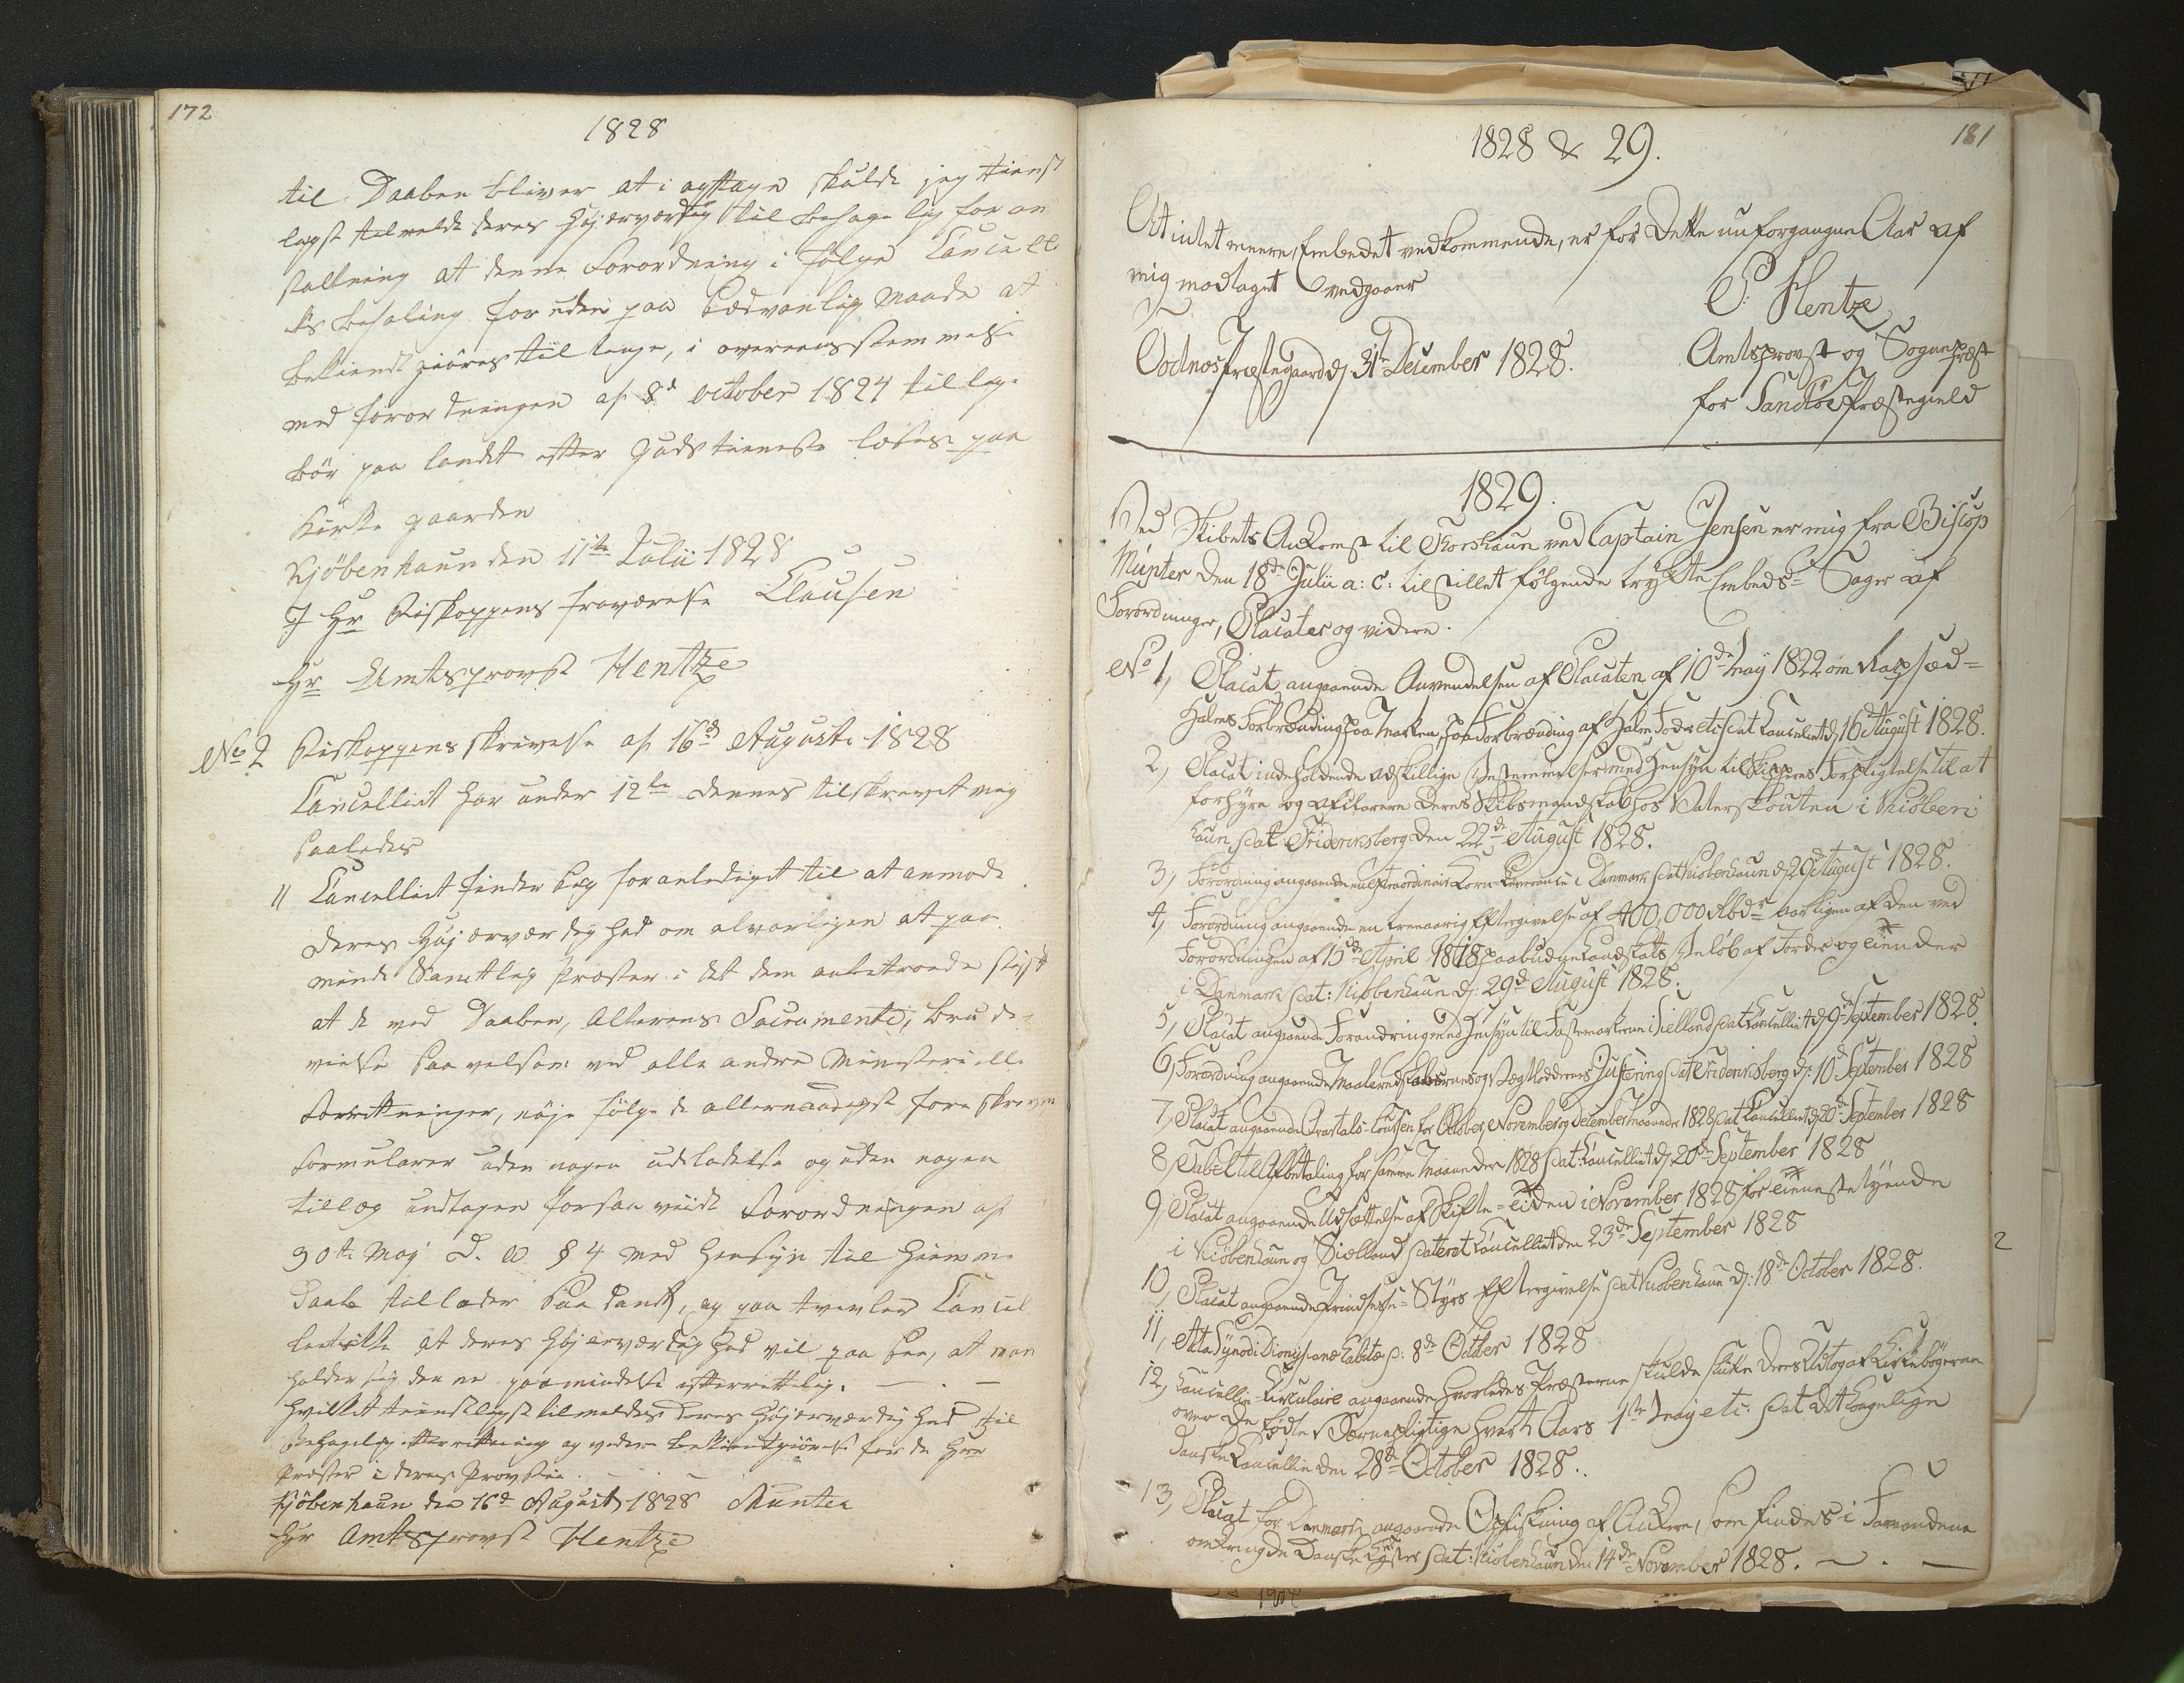 172
1828
til Daaben bliver at i agttage skulde jeg tienst
ligst tilmelde deres Høiærværdig til behage lig for an
staltning at denne Forordning i følge Cancelli
ets befaling foruden paa sædvanlig Maade at
bekiendtgiøres til tinge, i overeensstemmelse
med forordningen af 8d october 1824 tillige
bør paa landet efter Guds tieneste læses paa
Kirke gaarden
Kjöbenhaun den 11te Julii 1828
I Hr Biskoppens fraværelse Clausen
Hr Amtsprovst Hentze
No 2 Biskoppens skrivelse af 16d August 1828
Cancelliet har under 12te dennes tilskrevet mig
saaledes
" Cancelliet finder sig foranlediget til at anmode
deres Høi ærværdighed om alvorligen at paa
minde samtlige Præster i det dem anbetroede stift
at de ved Daaben, Alterens Sacramente, brude
vielse saavelsom ved alle andre Ministerielle
Forretninger, nøje følge de allernaadigst fore skrevne
Formularer uden nogen udeladelse og uden nogen
tillæg undtagen forsaa vidt Forordningen af
30te Maj D. A. § 4 med hensyn til hiemme
Daab tillader saadant, og paa tvivler Cancel
liet ikke at deres Høiærværdighed vil paa see, at man
holder sig denne paamindelse efterrettelig.
hvilket tienstligst tilmeldes deres Høiærværdighed til
behagelig efterretning og videre bekiendtgiørelse for de Hrr
Præster i deres Provstie.
Kjöbenhaun den 16d August 1828 Münter
Hr Amtsprovst Hentze
181
1828 & 29.
At intet meere, Embedet vedkommende, er for dette nu forgangne Aar af
mig modtaget vedgaaer
P: Hentze
Oodnæs Præstegaard d: 31te December 1828.
Amtsprovst og Sognepræst
for Sandöe Præstegield
1829.
Ved Skibets Ankomst til Thorshaun ved Captain Jensen er mig fra Biscop
Münter den 18de Julii a: c: tilstillet følgende trykte Embeds= Sager af
Forordninger, Placater og videre.
No 1, Placat angaaende Anvendelsen af Placaten af 10de Maÿ 1822 om Rapsæd=
Halms Forbrænding paa Marken, paa Forbrænding af Halm, Foder etc: dat Cancelliet d: 16 August 1828.
2, Placat indeholdende adskillige Bestemmelser med Hensyn til Skippernes Forpligtelse til at
forhyre og afklarere deres Skibsmandskab hos Waterskouten i Kiöben
haun, dat: Friderichsberg den 22de August 1828.
3, Forordning angaaende en extraordinair Korn-Leverance i Danmark dat Kiøbenhaun d: 29d August 1828.
4, Forordning angaaende en treaarig Eftergivelse af 400,000 Rbdr aarligen af den ved
Forordningen af 15de April 1818 paabudne Landskats Beløb af Jorder og Tiender
i Danmark dat: Kiøbenhaun d: 29de August 1828.
5, Placat angaaende Forandring med Hensyn til Fastemarkerne i Sielland dat Cancelliet d: 9de September 1828.
6, Forordning angaaende Maaleredskabernes og Vægtloddernes Justering dat Friderichsberg d: 10d September 1828
7, Placat angaaende Qvartals-Coursen for October, November og December Maaneder 1828 dat Cancelliet d: 20de September 1828
8, Tabel til Afbetaling for samme Maaneder 1828 dat: Cancelliet d: 20de September 1828
9, Placat angaaende Udsættelse af Skifte= Tiden i November 1828 for Tienestetyende
i Kiöbenhaun og Sielland dateret Cancelliet den 23de September 1828
10, Placat angaaende Prindsesse= Styrs Eftergivelse dat Kiøbenhaun d: 18de October 1828.
11, Akta Synodi Dionysianæ habitæ d: 8de Octber 1828
12, Cancellie-Circulaire angaaende hvorledes Præsterne skulde slutte deres Udtog af Kirkebøgerne
over de fødte Værnepligtige hvert Aars 1ste Maÿ etc: dat det kongelige
danske Cancellie den 28de October 1828.
13, Placat for Danmark, angaaende Opfiskning af Ankere, som findes i Farvandene
omkring de Danske Kyster dat: Kiøbenhaun den 14de November 1828.
2